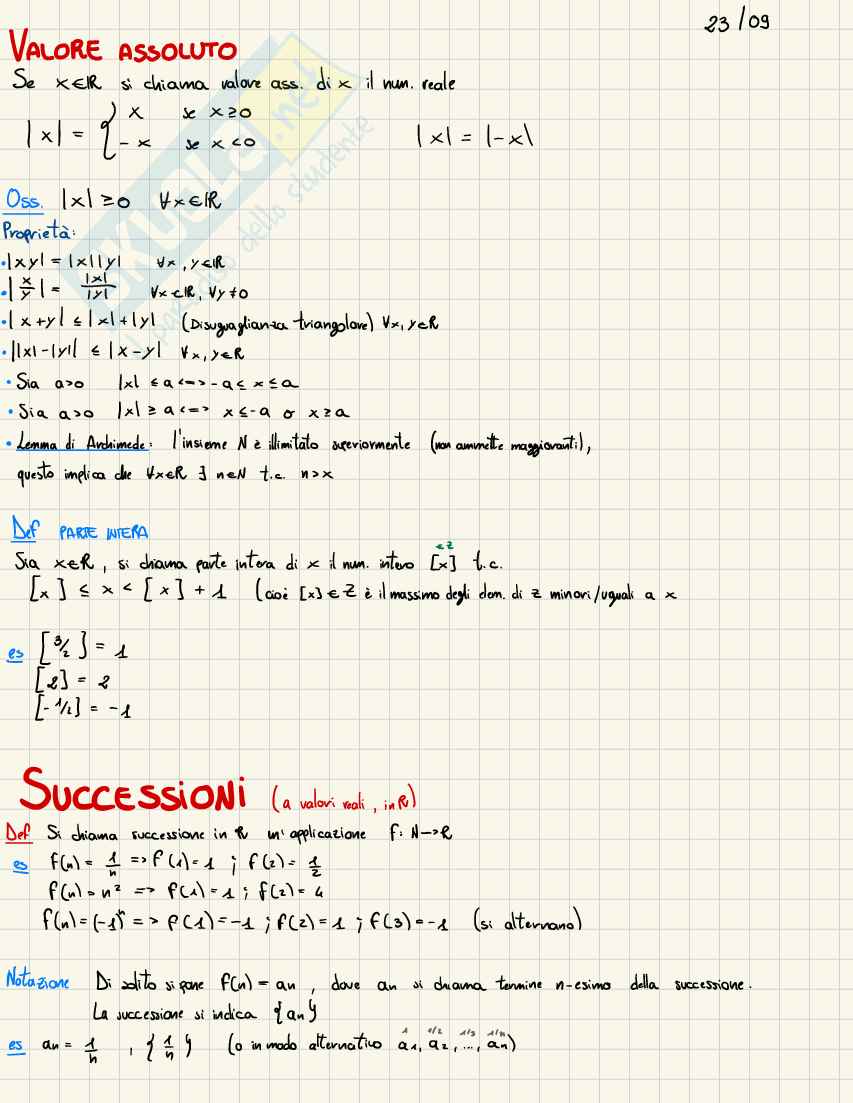 23/09
VALORE ASSOLUTO
Se x∈ℝ si chiama valore ass. di x il num. reale
|x| = { x se x≥0
-x se x<0
|x| = |-x|
Oss. |x| ≥0 ∀x∈ℝ
Proprietà:
•|xy| = |x||y| ∀x, y∈ℝ
•|x/y| = |x|/|y| ∀x∈ℝ, ∀y≠0
•|x+y| ≤ |x|+|y| (Disuguaglianza triangolare) ∀x, y∈ℝ
•||x|-|y|| ≤ |x-y| ∀x, y∈ℝ
• Sia a>0 |x| ≤ a <=> -a ≤ x ≤ a
• Sia a>0 |x| ≥ a <=> x≤-a o x≥a
• Lemma di Archimede: l'insieme N è illimitato superiormente (non ammette maggioranti),
questo implica che ∀x∈ℝ ∃ n∈N t.c. n>x
Def PARTE INTERA
∈Z
Sia x∈ℝ, si chiama parte intera di x il num. intero [x] t.c.
[x] ≤ x < [x] + 1 (cioè [x]∈Z è il massimo degli elem. di Z minori/uguali a x
es [3/2] = 1
[2] = 2
[-1/2] = -1
SUCCESSIONI (a valori reali, in ℝ)
Def Si chiama successione in ℝ un'applicazione f: N->ℝ
es f(n) = 1/n => f(1)=1 ; f(2)= 1/2
f(n) = n² => f(1)=1 ; f(2)=4
f(n)=(-1)ⁿ => f(1)=-1 ; f(2)=1 ; f(3)=-1 (si alternano)
Notazione Di solito si pone f(n) = an, dove an si chiama termine n-esimo della successione.
La successione si indica {an}
1 1/2 1/3 1/n
es an = 1/n , {1/n} (o in modo alternativo a1, a2, ..., an)
SKUOLA.net
il paradiso dello studente